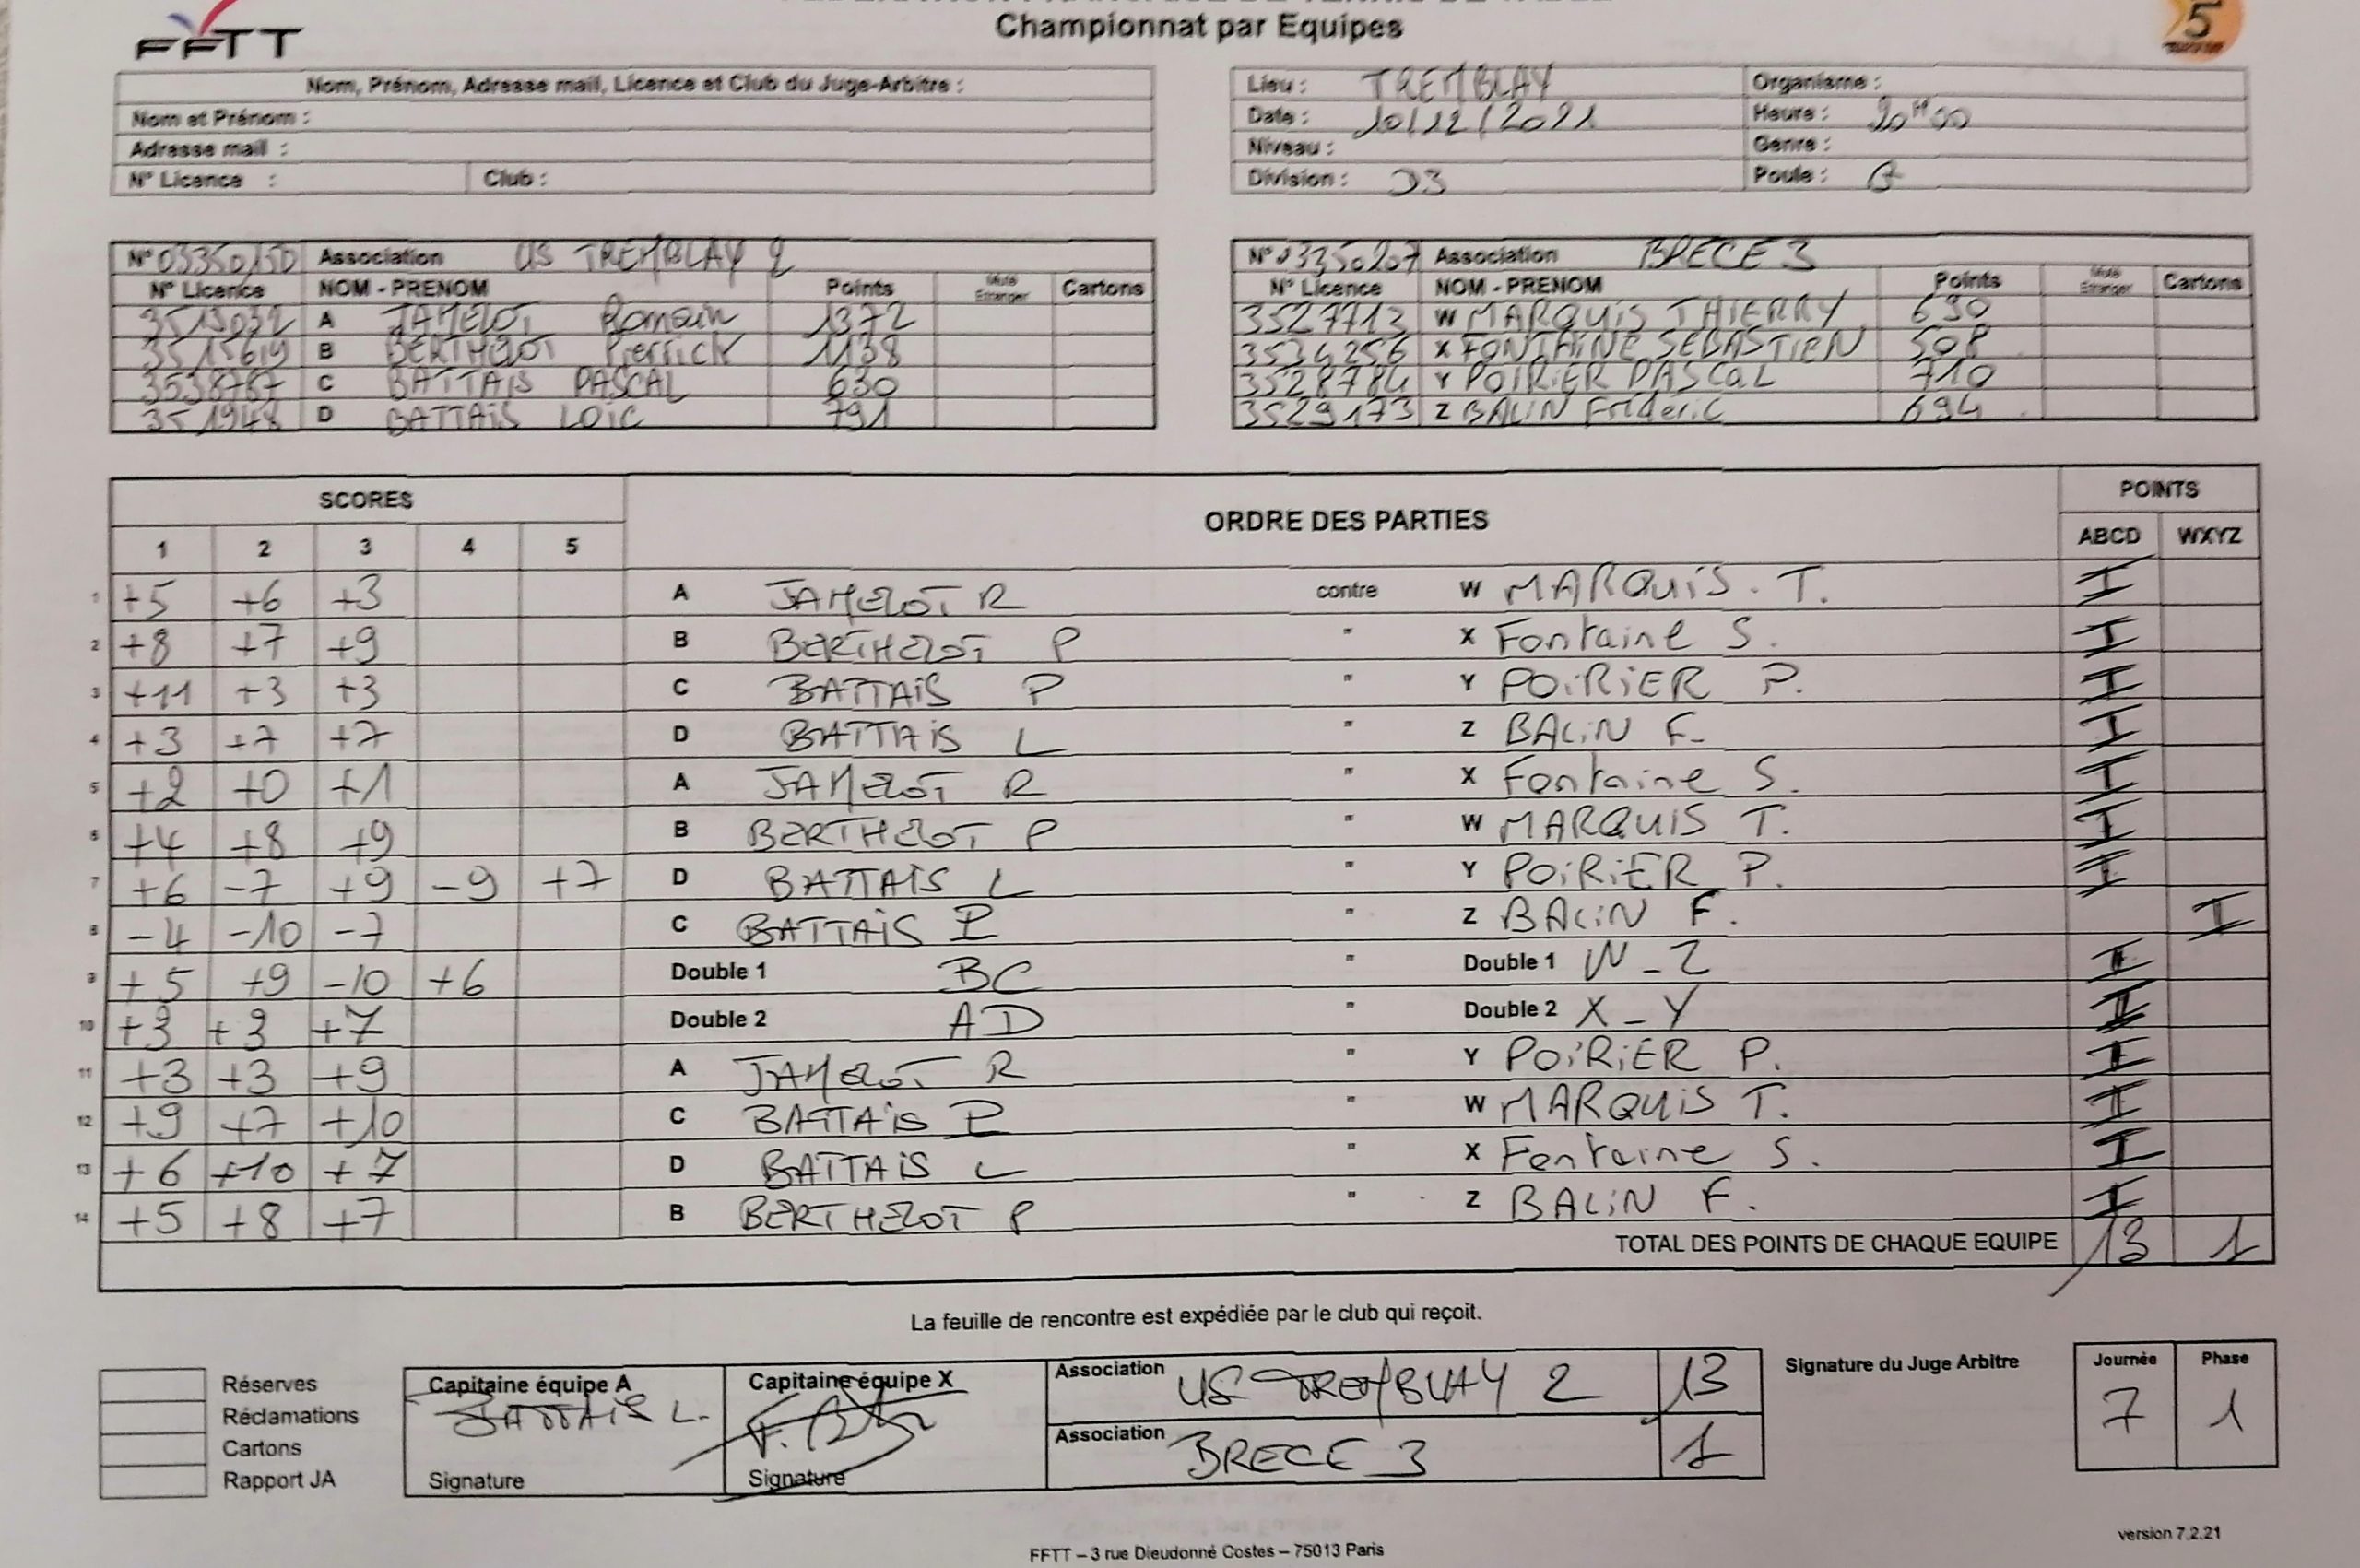 Championnat par Equipes
FFTT
5
Nom, Prénom, Adresse mail, Licence et Club du Juge-Arbitre :
Nom et Prénom :
Adresse mail :
N° Licence : Club :
Lieu : TREMBLAY Organisme :
Date : 10/12/2021 Heure : 20H00
Niveau : Genre :
Division : D3 Poule :
N° 03350150 Association US TREMBLAY 2
N° Licence NOM - PRENOM Points Muté Etranger Cartons
3513032 A JAMELOT Romain 1372
3515619 B BERTHELOT Pierrick 1138
3538787 C BATTAIS PASCAL 630
351948 D BATTAIS LOIC 791
N° 03350207 Association BRECE 3
N° Licence NOM - PRENOM Points Muté Etranger Cartons
3527713 W MARQUIS THIERRY 630
3534256 X FONTAINE SEBASTIEN 508
3528784 Y POIRIER PASCAL 710
3529173 Z BALIN Fréderic 694
SCORES ORDRE DES PARTIES POINTS
1 2 3 4 5 ABCD WXYZ
1 +5 +6 +3 A JAMELOT R contre W MARQUIS . T. I
2 +8 +7 +9 B BERTHELOT P " X Fontaine S. I
3 +11 +3 +3 C BATTAIS P " Y POIRIER P. I
4 +3 +7 +7 D BATTAIS L " Z BALIN F. I
5 +2 +0 +1 A JAMELOT R " X Fontaine S. I
6 +4 +8 +9 B BERTHELOT P " W MARQUIS T. I
7 +6 -7 +9 -9 +7 D BATTAIS L " Y POIRIER P. I
8 -4 -10 -7 C BATTAIS P " Z BALIN F. I
9 +5 +9 -10 +6 Double 1 BC " Double 1 W_Z I
10 +3 +3 +7 Double 2 AD " Double 2 X_Y I
11 +3 +3 +9 A JAMELOT R " Y POIRIER P. I
12 +9 +7 +10 C BATTAIS P " W MARQUIS T. I
13 +6 +10 +7 D BATTAIS L " X Fontaine S. I
14 +5 +8 +7 B BERTHELOT P " Z BALIN F. I
TOTAL DES POINTS DE CHAQUE EQUIPE 13 1
La feuille de rencontre est expédiée par le club qui reçoit.
Réserves
Réclamations
Cartons
Rapport JA
Capitaine équipe A
BATTAIS L.
Signature
Capitaine équipe X
Signature
Association US TREMBLAY 2 13
Association BRECE 3 1
Signature du Juge Arbitre
Journée Phase
7 1
version 7.2.21
FFTT – 3 rue Dieudonné Costes – 75013 Paris